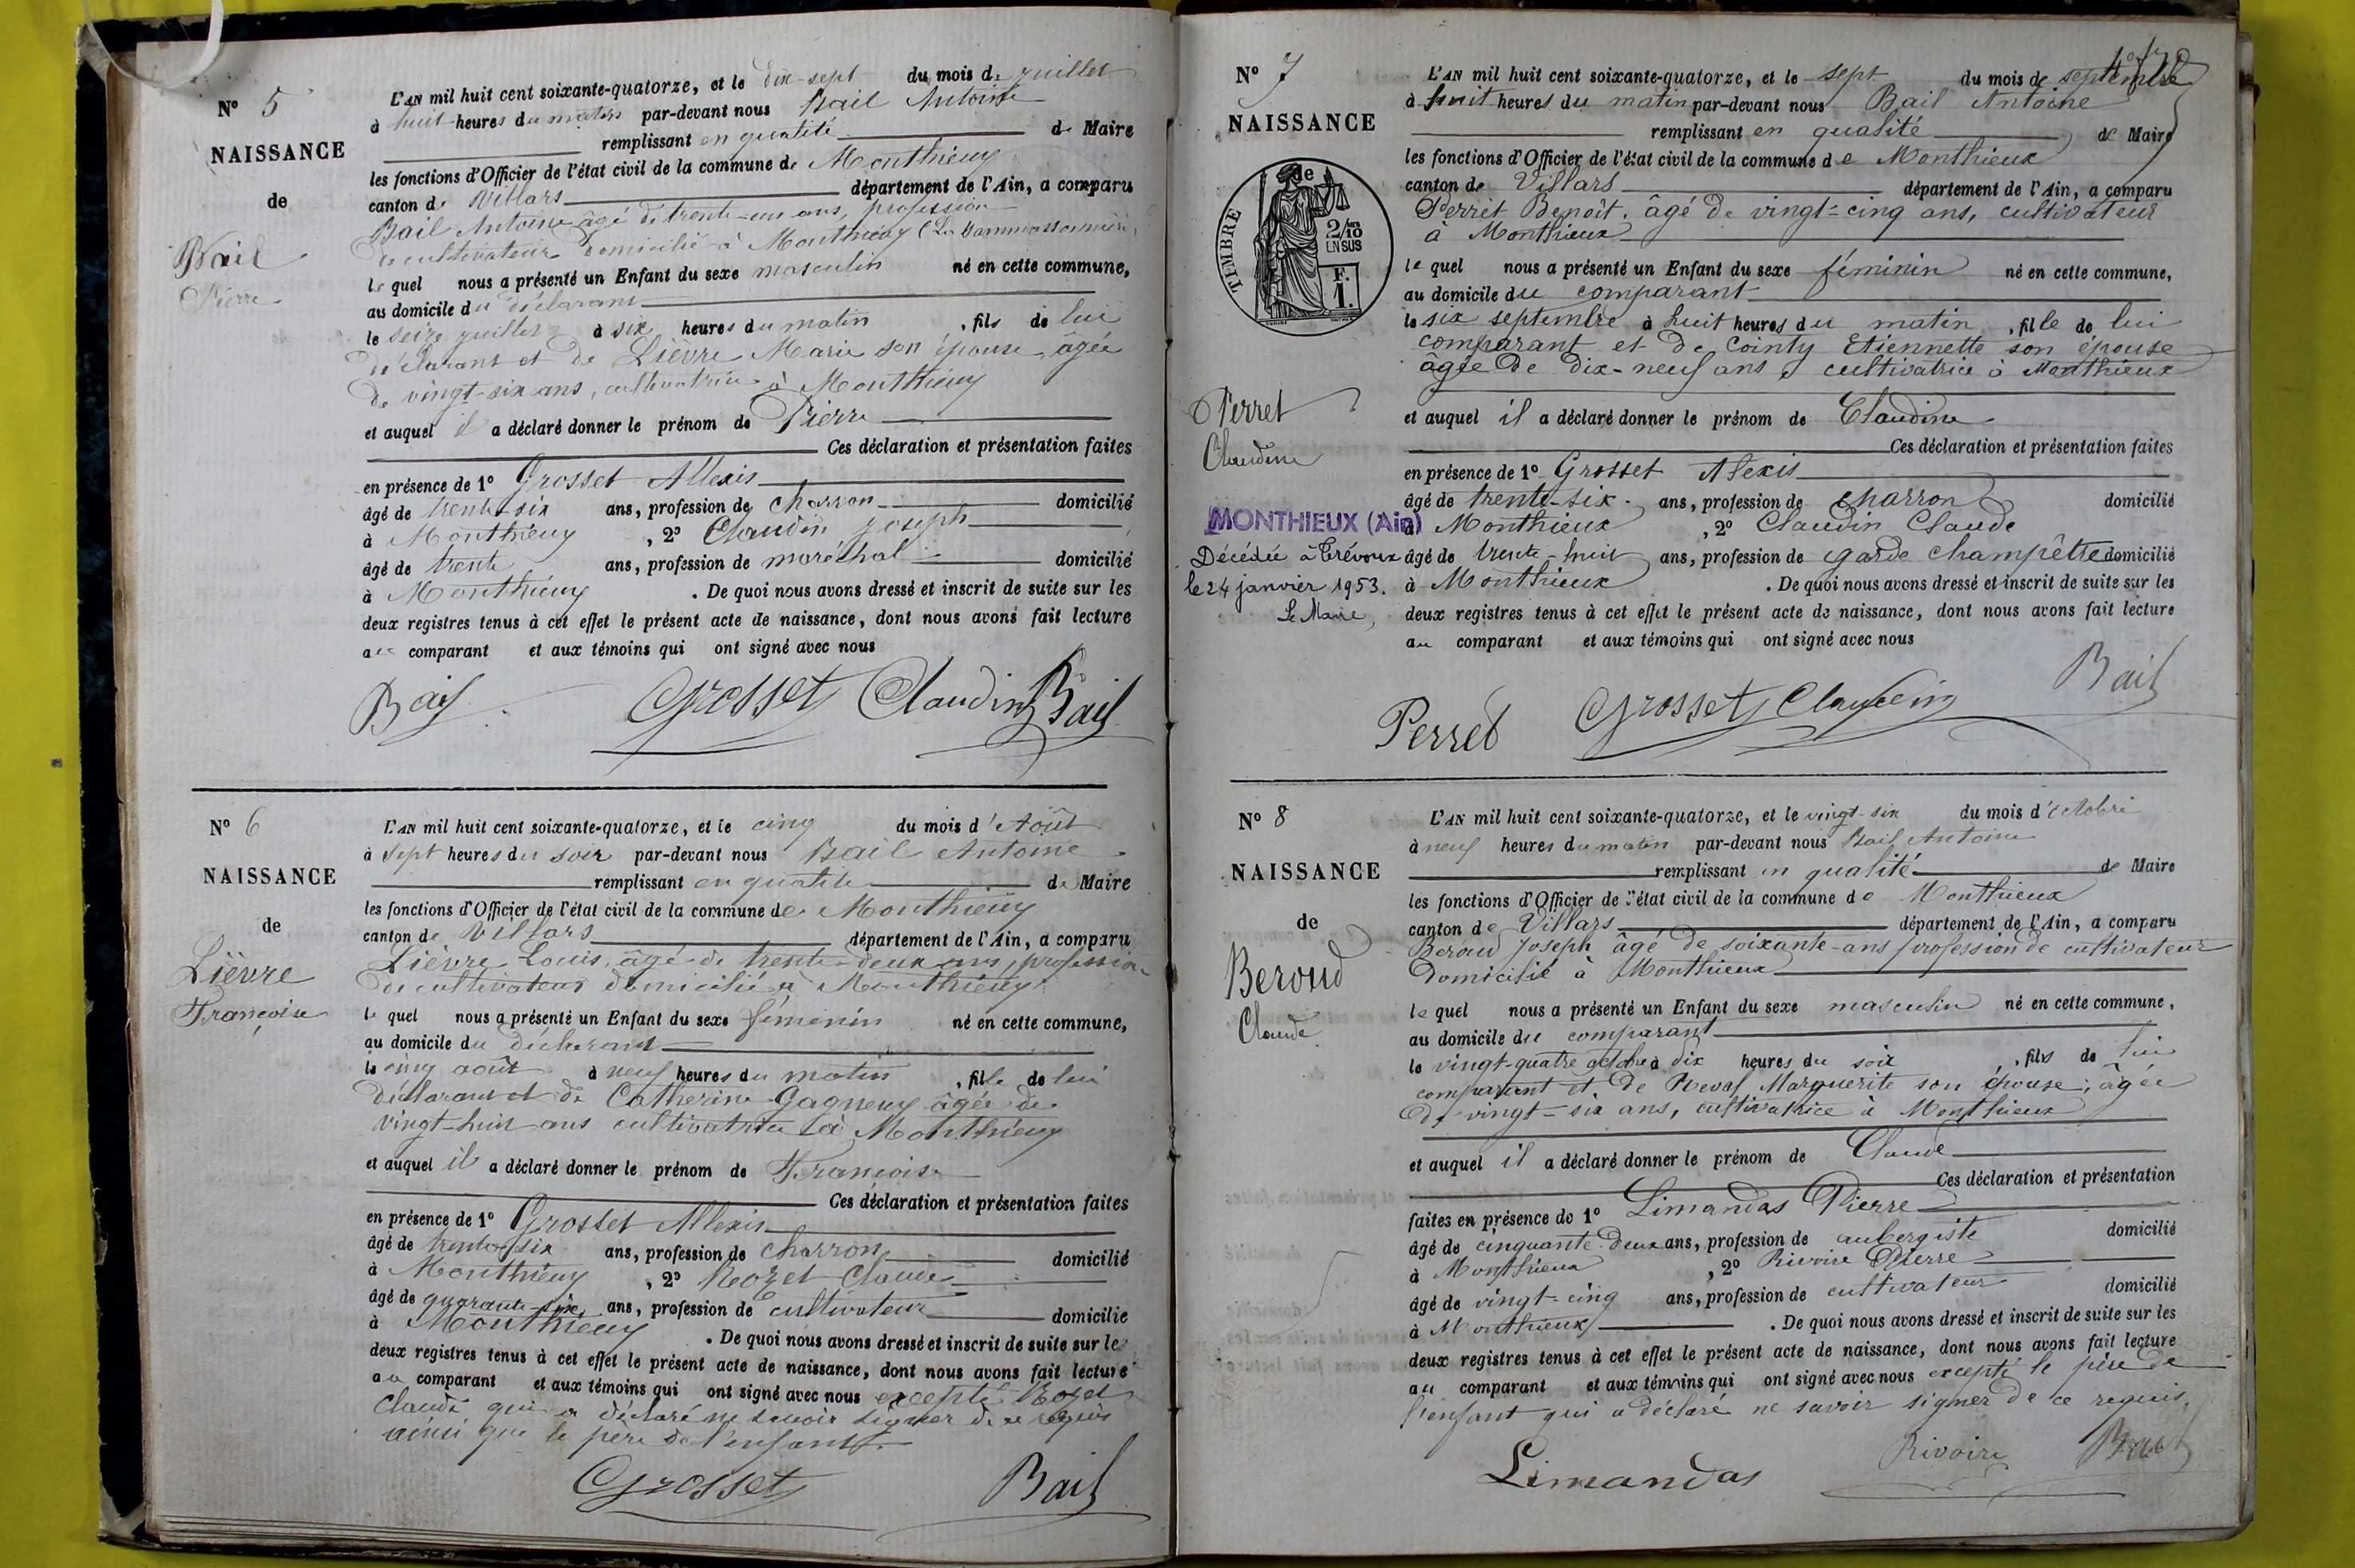 N° 5
NAISSANCE
de
Bail
Pierre
L'AN mil huit cent soixante-quatorze, et le dix-sept du mois de juillet
à huit heures du matin par-devant nous Bail Antoine
remplissant en qualité de Maire
les fonctions d'Officier de l'état civil de la commune de Monthieux
canton de Villars département de l'Ain, a comparu
Bail Antoine âgé de trente-un ans, profession
de cultivateur domicilié à Monthieux
le quel nous a présenté un Enfant du sexe masculin né en cette commune,
au domicile du déclarant
le seize juillet à six heures du matin, fils de lui
déclarant et de Lièvre Marie son épouse âgée
de vingt-six ans, cultivatrice à Monthieux
et auquel il a déclaré donner le prénom de Pierre
Ces déclaration et présentation faites
en présence de 1° Grosset Allexis
âgé de trente-six ans, profession de charron domicilié
à Monthieux, 2° Claudin Joseph
âgé de trente ans, profession de maréchal domicilié
à Monthieux. De quoi nous avons dressé et inscrit de suite sur les
deux registres tenus à cet effet le présent acte de naissance, dont nous avons fait lecture
au comparant et aux témoins qui ont signé avec nous
Bail Grosset Claudin Bail
N° 6
NAISSANCE
de
Lièvre
Françoise
L'AN mil huit cent soixante-quatorze, et le cinq du mois d'Août
à sept heures du soir par-devant nous Bail Antoine
remplissant en qualité de Maire
les fonctions d'Officier de l'état civil de la commune de Monthieux
canton de Villars département de l'Ain, a comparu
Lièvre Louis, âgé de trente-deux ans, profession
de cultivateur domicilié à Monthieux
le quel nous a présenté un Enfant du sexe féminin né en cette commune,
au domicile du déclarant
le cinq août à neuf heures du matin, fille de lui
déclarant et de Catherine Gagneux âgée de
vingt-huit ans cultivatrice à Monthieux
et auquel il a déclaré donner le prénom de Françoise
Ces déclaration et présentation faites
en présence de 1° Grosset Allexis
âgé de trente-six ans, profession de charron domicilié
à Monthieux, 2° Rozet Claude
âgé de quarante-six ans, profession de cultivateur domicilié
à Monthieux. De quoi nous avons dressé et inscrit de suite sur les
deux registres tenus à cet effet le présent acte de naissance, dont nous avons fait lecture
au comparant et aux témoins qui ont signé avec nous excepté Rozet
Claude qui a déclaré ne savoir signer de ce requis
ainsi que le père de l'enfant.
Grosset Bail
N° 7
NAISSANCE
de
TIMBRE
2/10 EN SUS
F. 1.
Perret
Claudine
MONTHIEUX (Ain)
Décédée à Trévoux
le 24 janvier 1953.
Le Maire,
L'AN mil huit cent soixante-quatorze, et le sept du mois de septembre
à huit heures du matin par-devant nous Bail Antoine
remplissant en qualité de Maire
les fonctions d'Officier de l'état civil de la commune de Monthieux
canton de Villars département de l'Ain, a comparu
Perret Benoît, âgé de vingt-cinq ans, cultivateur
à Monthieux
le quel nous a présenté un Enfant du sexe féminin né en cette commune,
au domicile du comparant
le six septembre à huit heures du matin, fille de lui
comparant et de Cointy Etiennette son épouse
âgée de dix-neuf ans, cultivatrice à Monthieux
et auquel il a déclaré donner le prénom de Claudine
Ces déclaration et présentation faites
en présence de 1° Grosset Alexis
âgé de trente-six ans, profession de charron domicilié
à Monthieux, 2° Claudin Claude
âgé de trente-huit ans, profession de garde champêtre domicilié
à Monthieux. De quoi nous avons dressé et inscrit de suite sur les
deux registres tenus à cet effet le présent acte de naissance, dont nous avons fait lecture
au comparant et aux témoins qui ont signé avec nous
Perret Grosset Claudin Bail
N° 8
NAISSANCE
de
Beroud
Claude
L'AN mil huit cent soixante-quatorze, et le vingt-six du mois d'octobre
à neuf heures du matin par-devant nous Bail Antoine
remplissant en qualité de Maire
les fonctions d'Officier de l'état civil de la commune de Monthieux
canton de Villars département de l'Ain, a comparu
Beroud Joseph âgé de soixante-ans profession de cultivateur
domicilié à Monthieux
le quel nous a présenté un Enfant du sexe masculin né en cette commune,
au domicile du comparant
le vingt-quatre octobre à dix heures du soir, fils de lui
comparant et de Marguerite son épouse, âgée
de vingt-six ans, cultivatrice à Monthieux
et auquel il a déclaré donner le prénom de Claude
Ces déclaration et présentation
faites en présence de 1° Limandas Pierre
âgé de cinquante-deux ans, profession de aubergiste domicilié
à Monthieux, 2° Rivoire Pierre
âgé de vingt-cinq ans, profession de cultivateur domicilié
à Monthieux. De quoi nous avons dressé et inscrit de suite sur les
deux registres tenus à cet effet le présent acte de naissance, dont nous avons fait lecture
au comparant et aux témoins qui ont signé avec nous excepté le père de
l'enfant qui a déclaré ne savoir signer de ce requis.
Limandas Rivoire Bail